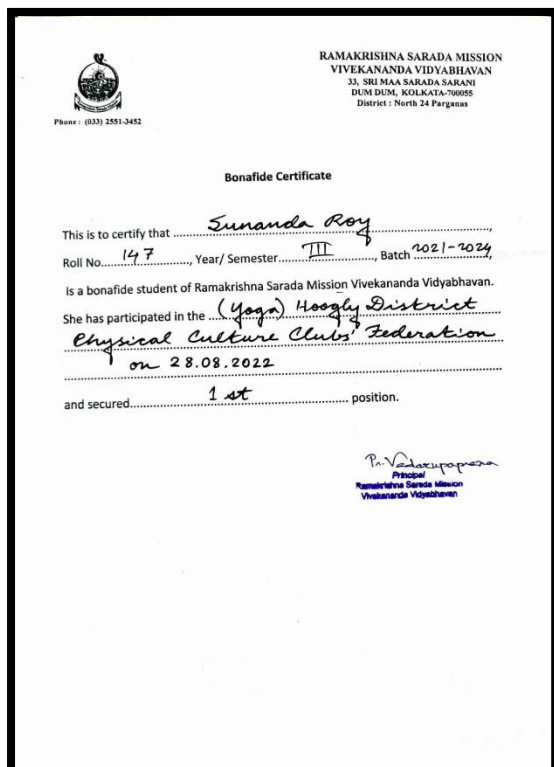 RAMAKRISHNA SARADA MISSION
VIVEKANANDA VIDYABHAVAN
33, SRI MAA SARADA SARANI
DUM DUM, KOLKATA-700055
District : North 24 Parganas
Phone : (033) 2551-3452
Bonafide Certificate
This is to certify that Sunanda Roy,
Roll No. 147, Year/ Semester III, Batch 2021-2024,
is a bonafide student of Ramakrishna Sarada Mission Vivekananda Vidyabhavan.
She has participated in the (Yoga) Hoogly District
Physical Culture Clubs' Federation
on 28.08.2022
and secured 1st position.
Principal
Ramakrishna Sarada Mission
Vivekananda Vidyabhavan